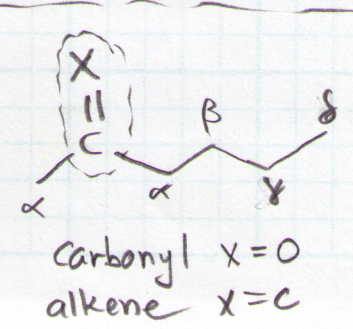 X
||
C
β δ
α α γ
carbonyl X=O
alkene X=C